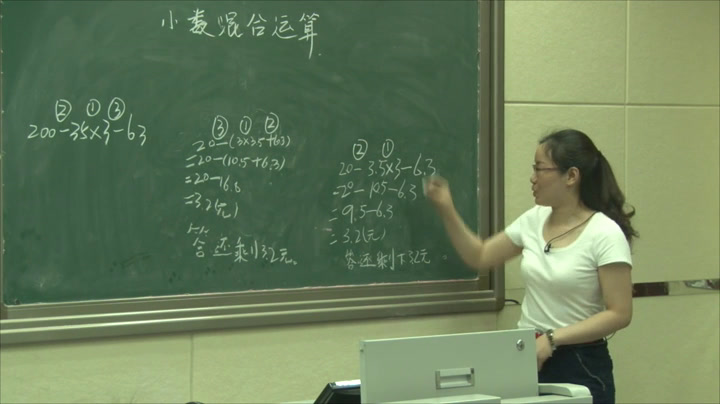 小数混合运算
② ① ③
200-35×3-63
③ ① ②
20-(3×3.5+6.3)
=20-(10.5+6.3)
=20-16.8
=3.2(元)
答还剩3.2元。
② ①
20-3.5×3-6.3
=20-10.5-6.3
=9.5-6.3
=3.2(元)
答还剩下3.2元。